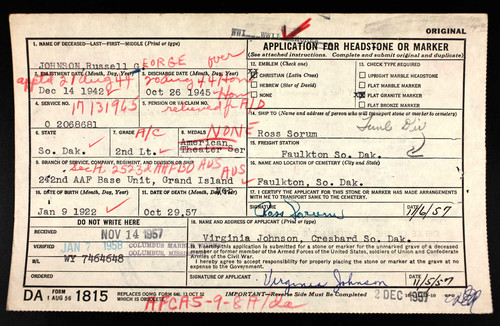 WWI WWII
ORIGINAL
1. NAME OF DECEASED-LAST-FIRST-MIDDLE (Print or type)
JOHNSON, Russell GEORGE over
APPLICATION FOR HEADSTONE OR MARKER
(See attached instructions. Submit original and duplicate)
2. ENLISTMENT DATE (Month, Day, Year)
3. DISCHARGE DATE (Month, Day, Year)
Dec 14 1942
Oct 26 1945 Hon
12. EMBLEM (Check one)
CHRISTIAN (Latin Cross)
HEBREW (Star of David)
NONE
13. CHECK TYPE REQUIRED
UPRIGHT MARBLE HEADSTONE
FLAT MARBLE MARKER
FLAT GRANITE MARKER
FLAT BRONZE MARKER
4. SERVICE NO.
17131965
O 2068681
5. PENSION OR CLAIM NO.
relieved fr A/D
14. SHIP TO (Name and address of person who will transport stone or marker to cemetery)
Ross Sorum
6. STATE
So. Dak.
7. GRADE
A/C
2nd Lt.
8. MEDALS
NONE
American
Theater Ser
15. FREIGHT STATION
Faulkton So. Dak.
9. BRANCH OF SERVICE, COMPANY, REGIMENT, AND DIVISION OR SHIP
242nd AAF Base Unit, Grand Island
AUS
16. NAME AND LOCATION OF CEMETERY (City and State)
Faulkton, So. Dak.
10. DATE OF BIRTH (Month, Day, Year)
Jan 9 1922
11. DATE OF DEATH (Month, Day, Year)
Oct 29,57
17. I CERTIFY THE APPLICANT FOR THIS STONE OR MARKER HAS MADE ARRANGEMENTS WITH ME TO TRANSPORT SAME TO THE CEMETERY.
SIGNATURE
Ross Sorum
DATE
11/6/57
DO NOT WRITE HERE
18. NAME AND ADDRESS OF APPLICANT (Print or type)
Virginia Johnson, Cresbard So. Dak.
RECEIVED
NOV 14 1957
JAN 7 1958
COLUMBUS MARB
COLUMBUS, MISS
B/L
WY 7464648
This certification is submitted for a stone or marker for the unmarked grave of a deceased member or former member of the Armed Forces of the United States, soldiers of Union and Confederate Armies of the Civil War.
I hereby agree to accept responsibility for properly placing the stone or marker at the grave at no expense to the Government.
Virginia Johnson
11/5/57
DA FORM 1 AUG 56 1815
IMPORTANT-Reverse Side Must be Completed
2 DEC 1957